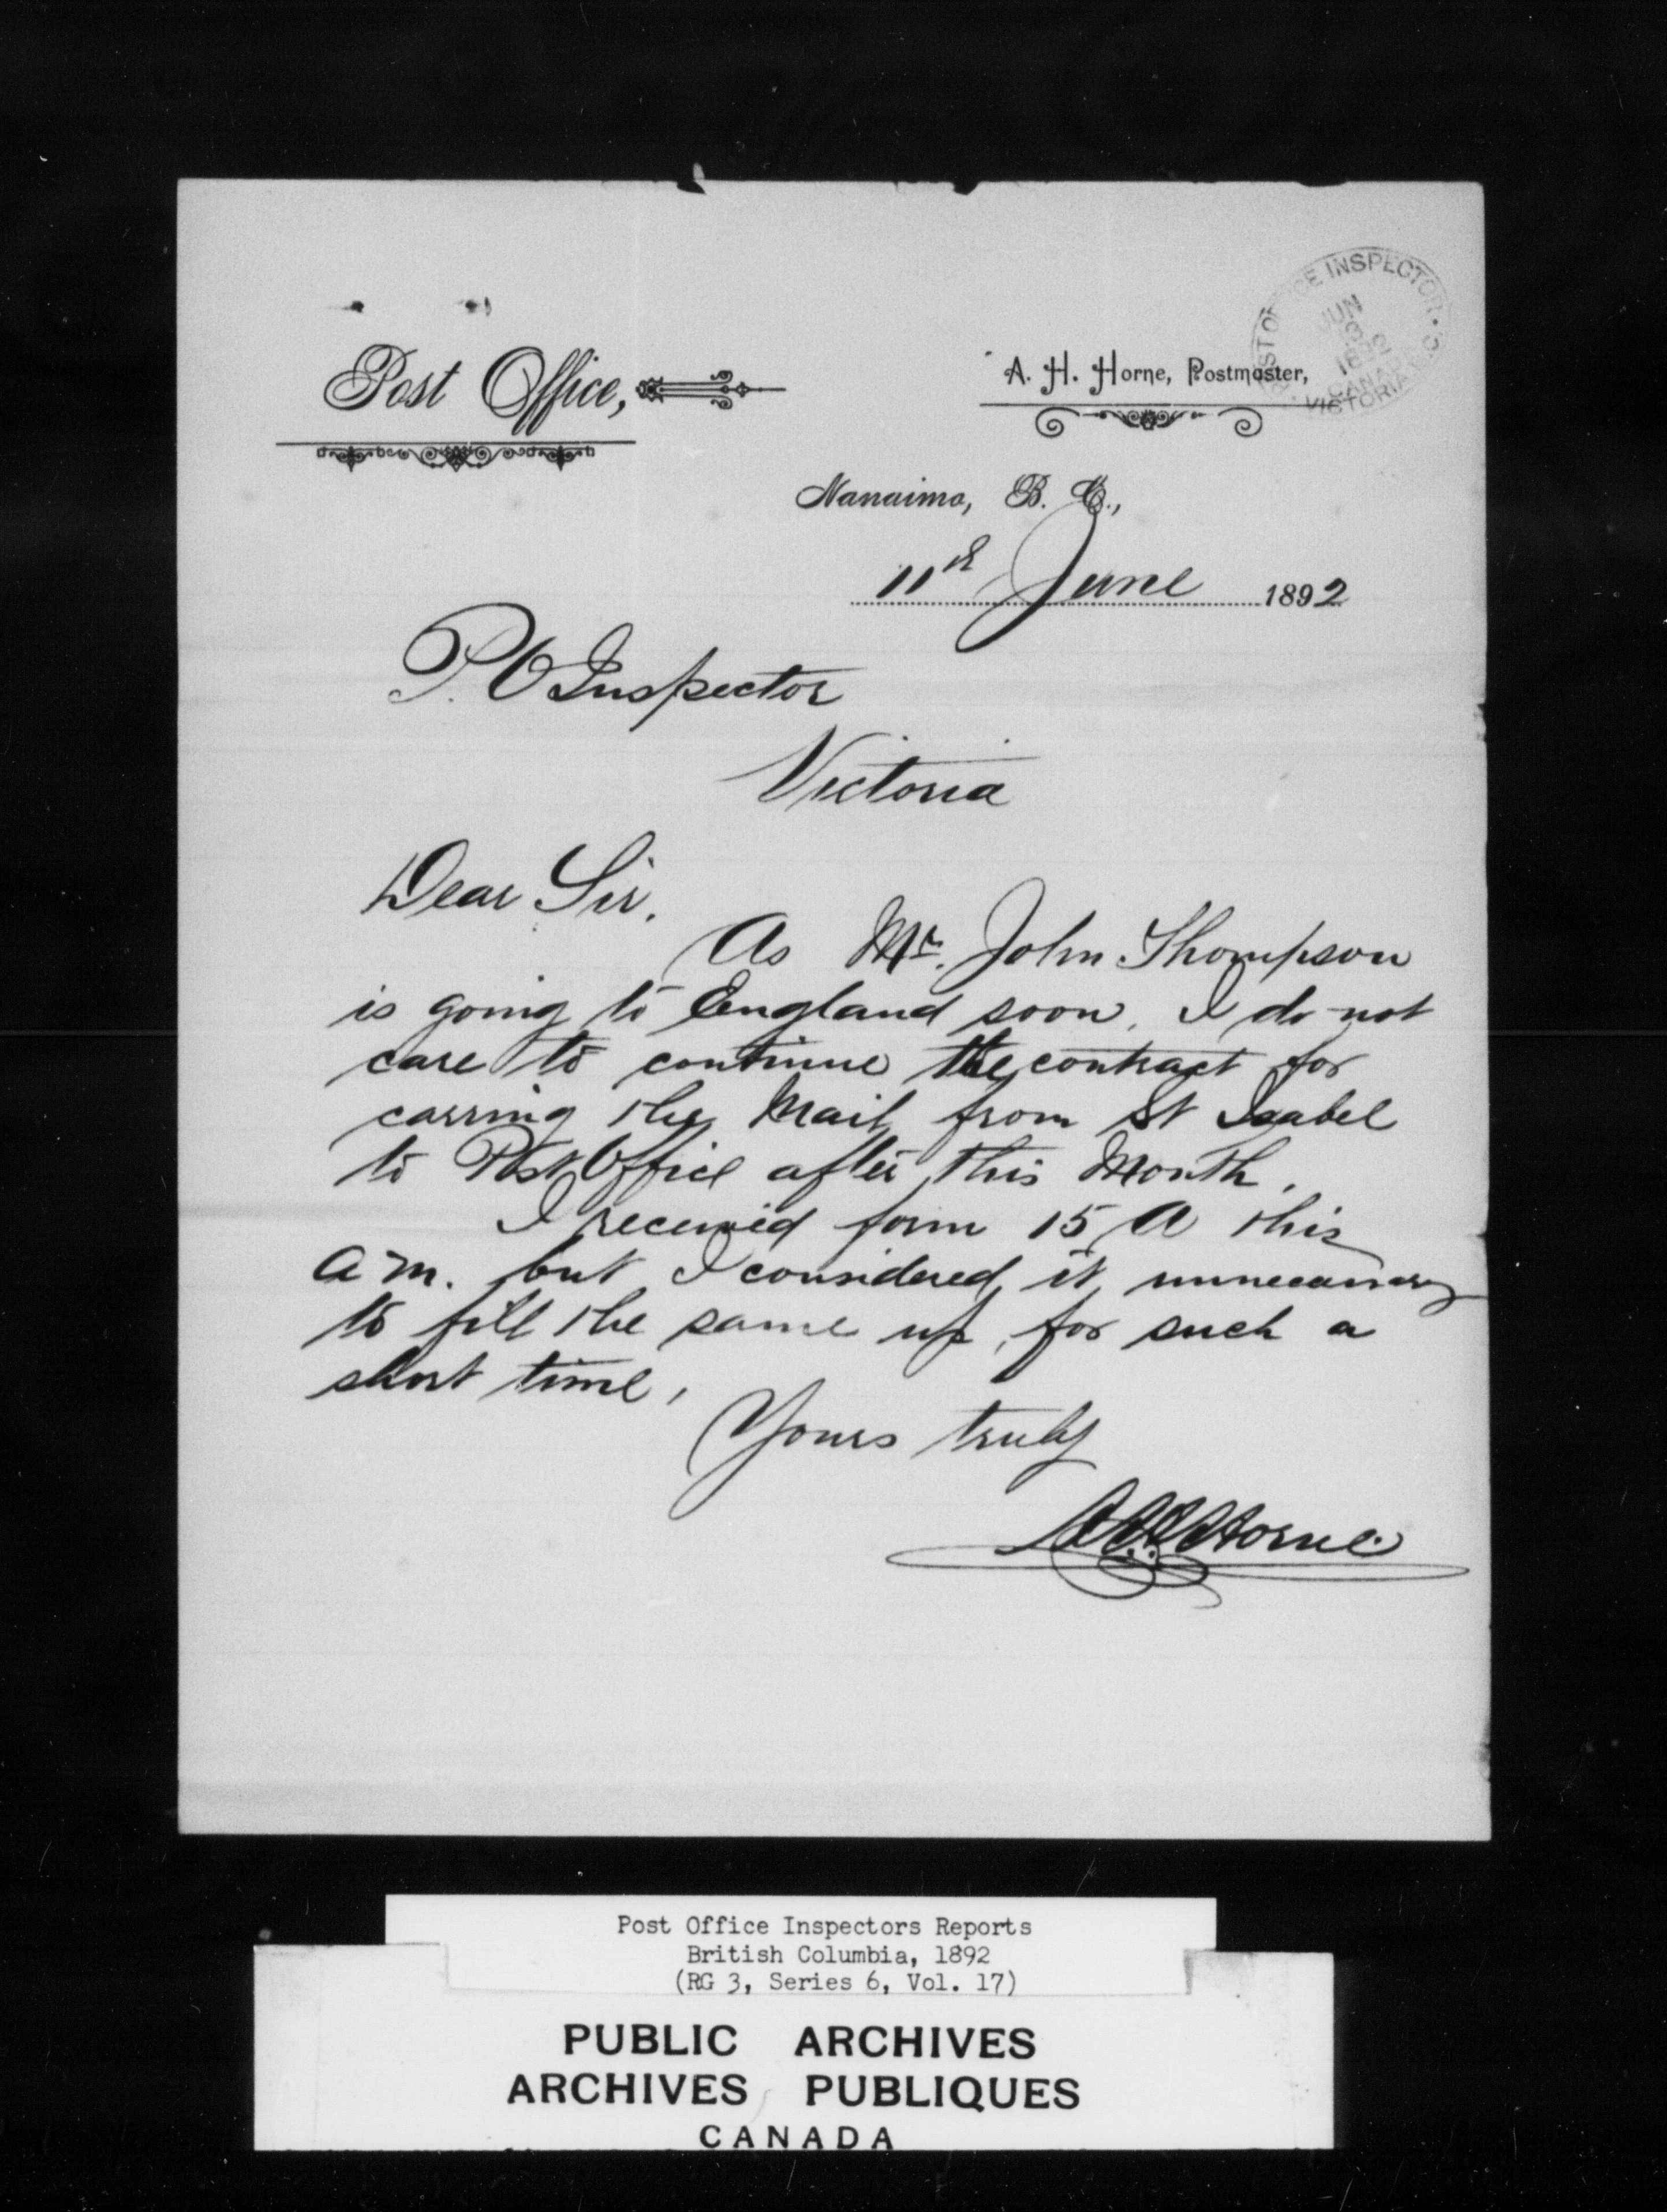 POST OFFICE INSPECTOR
JUN
13
1892
CANADA
VICTORIA B.C.
Post Office,
A. H. Horne, Postmaster,
Nanaimo, B. C.,
11th June 1892
P.O Inspector
Victoria
Dear Sir.
As Mr. John Thompson
is going to England soon, I do not
care to continue the contract for
carring the Mail from St Isabel
to Post Office after this Month.
I received form 15 A this
a m. but I considered it unnecessary
to fill the same up, for such a
short time,
Yours truly
A.H. Horne
Post Office Inspectors Reports
British Columbia, 1892
(RG 3, Series 6, Vol. 17)
PUBLIC ARCHIVES
ARCHIVES PUBLIQUES
CANADA